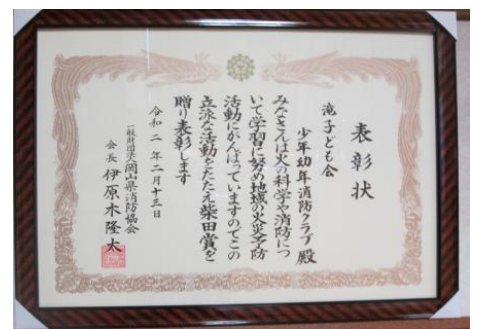 表彰状
滝子ども会
少年幼年消防クラブ殿
みなさんは火の科学や消防につ
いて学習に努め地域の火災予防
活動にがんばっていますのでこの
立派な活動をたたえ柴田賞を
贈り表彰します
令和二年二月十三日
一般財団法人岡山県消防協会
会長 伊原木隆太